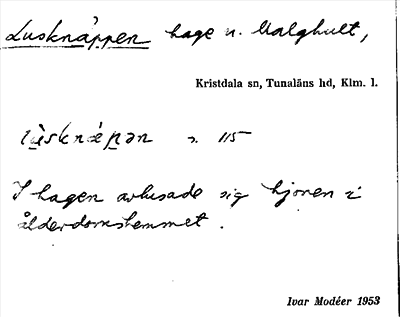 Lusknäppen hage n. Malghult,
Kristdala sn, Tunaläns hd, Klm. l.
lùsknæ̀pən s. 115
I hagen avlusade sig hjonen i
ålderdomshemmet.
Ivar Modéer 1953